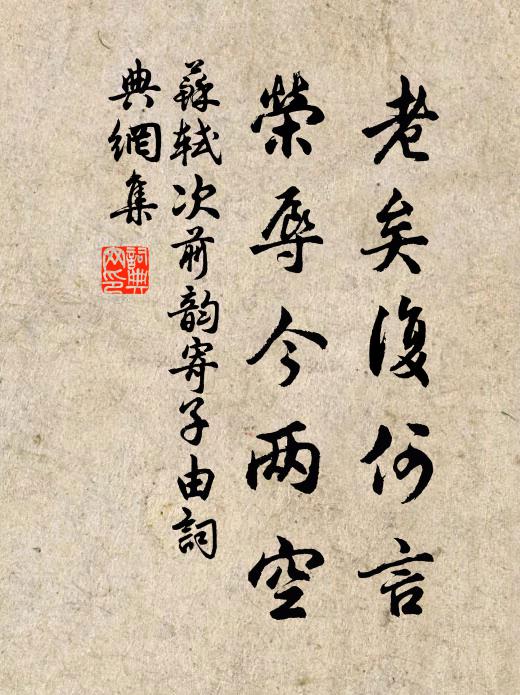 老矣復何言
榮辱今两空
蘇軾次前韵寄子由詞
典網集
詞典
网印